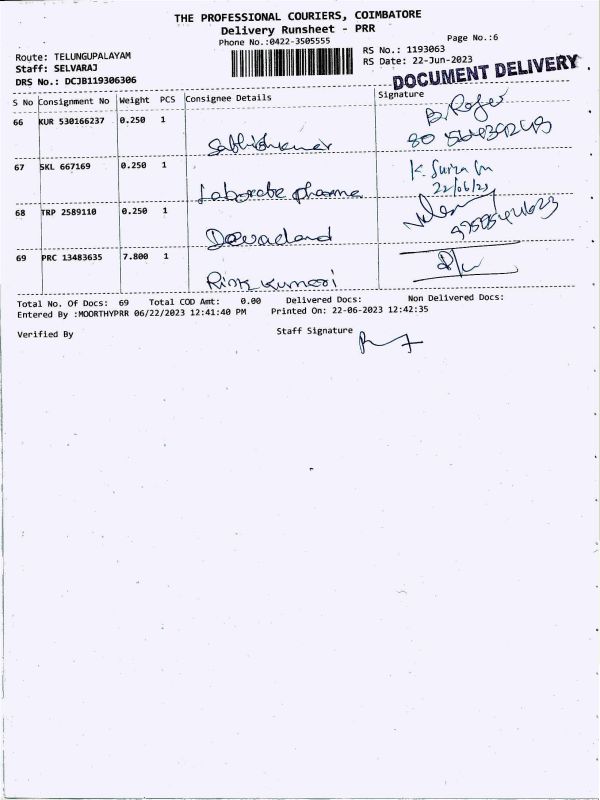 THE PROFESSIONAL COURIERS, COIMBATORE
Delivery Runsheet - PRR
Phone No.:0422-3505555
Page No.:6
Route: TELUNGUPALAYAM
RS No.: 1193063
Staff: SELVARAJ
RS Date: 22-Jun-2023
DRS No.: DCJB119306306
DOCUMENT DELIVERY
S No Consignment No Weight PCS Consignee Details Signature
66 KUR 530166237 0.250 1
67 SKL 667169 0.250 1
22/06/23
Laborate pharma
68 TRP 2589110 0.250 1
69 PRC 13483635 7.800 1
Rink kumari
Total No. Of Docs: 69 Total COD Amt: 0.00 Delivered Docs: Non Delivered Docs:
Entered By :MOORTHYPRR 06/22/2023 12:41:40 PM Printed On: 22-06-2023 12:42:35
Verified By Staff Signature